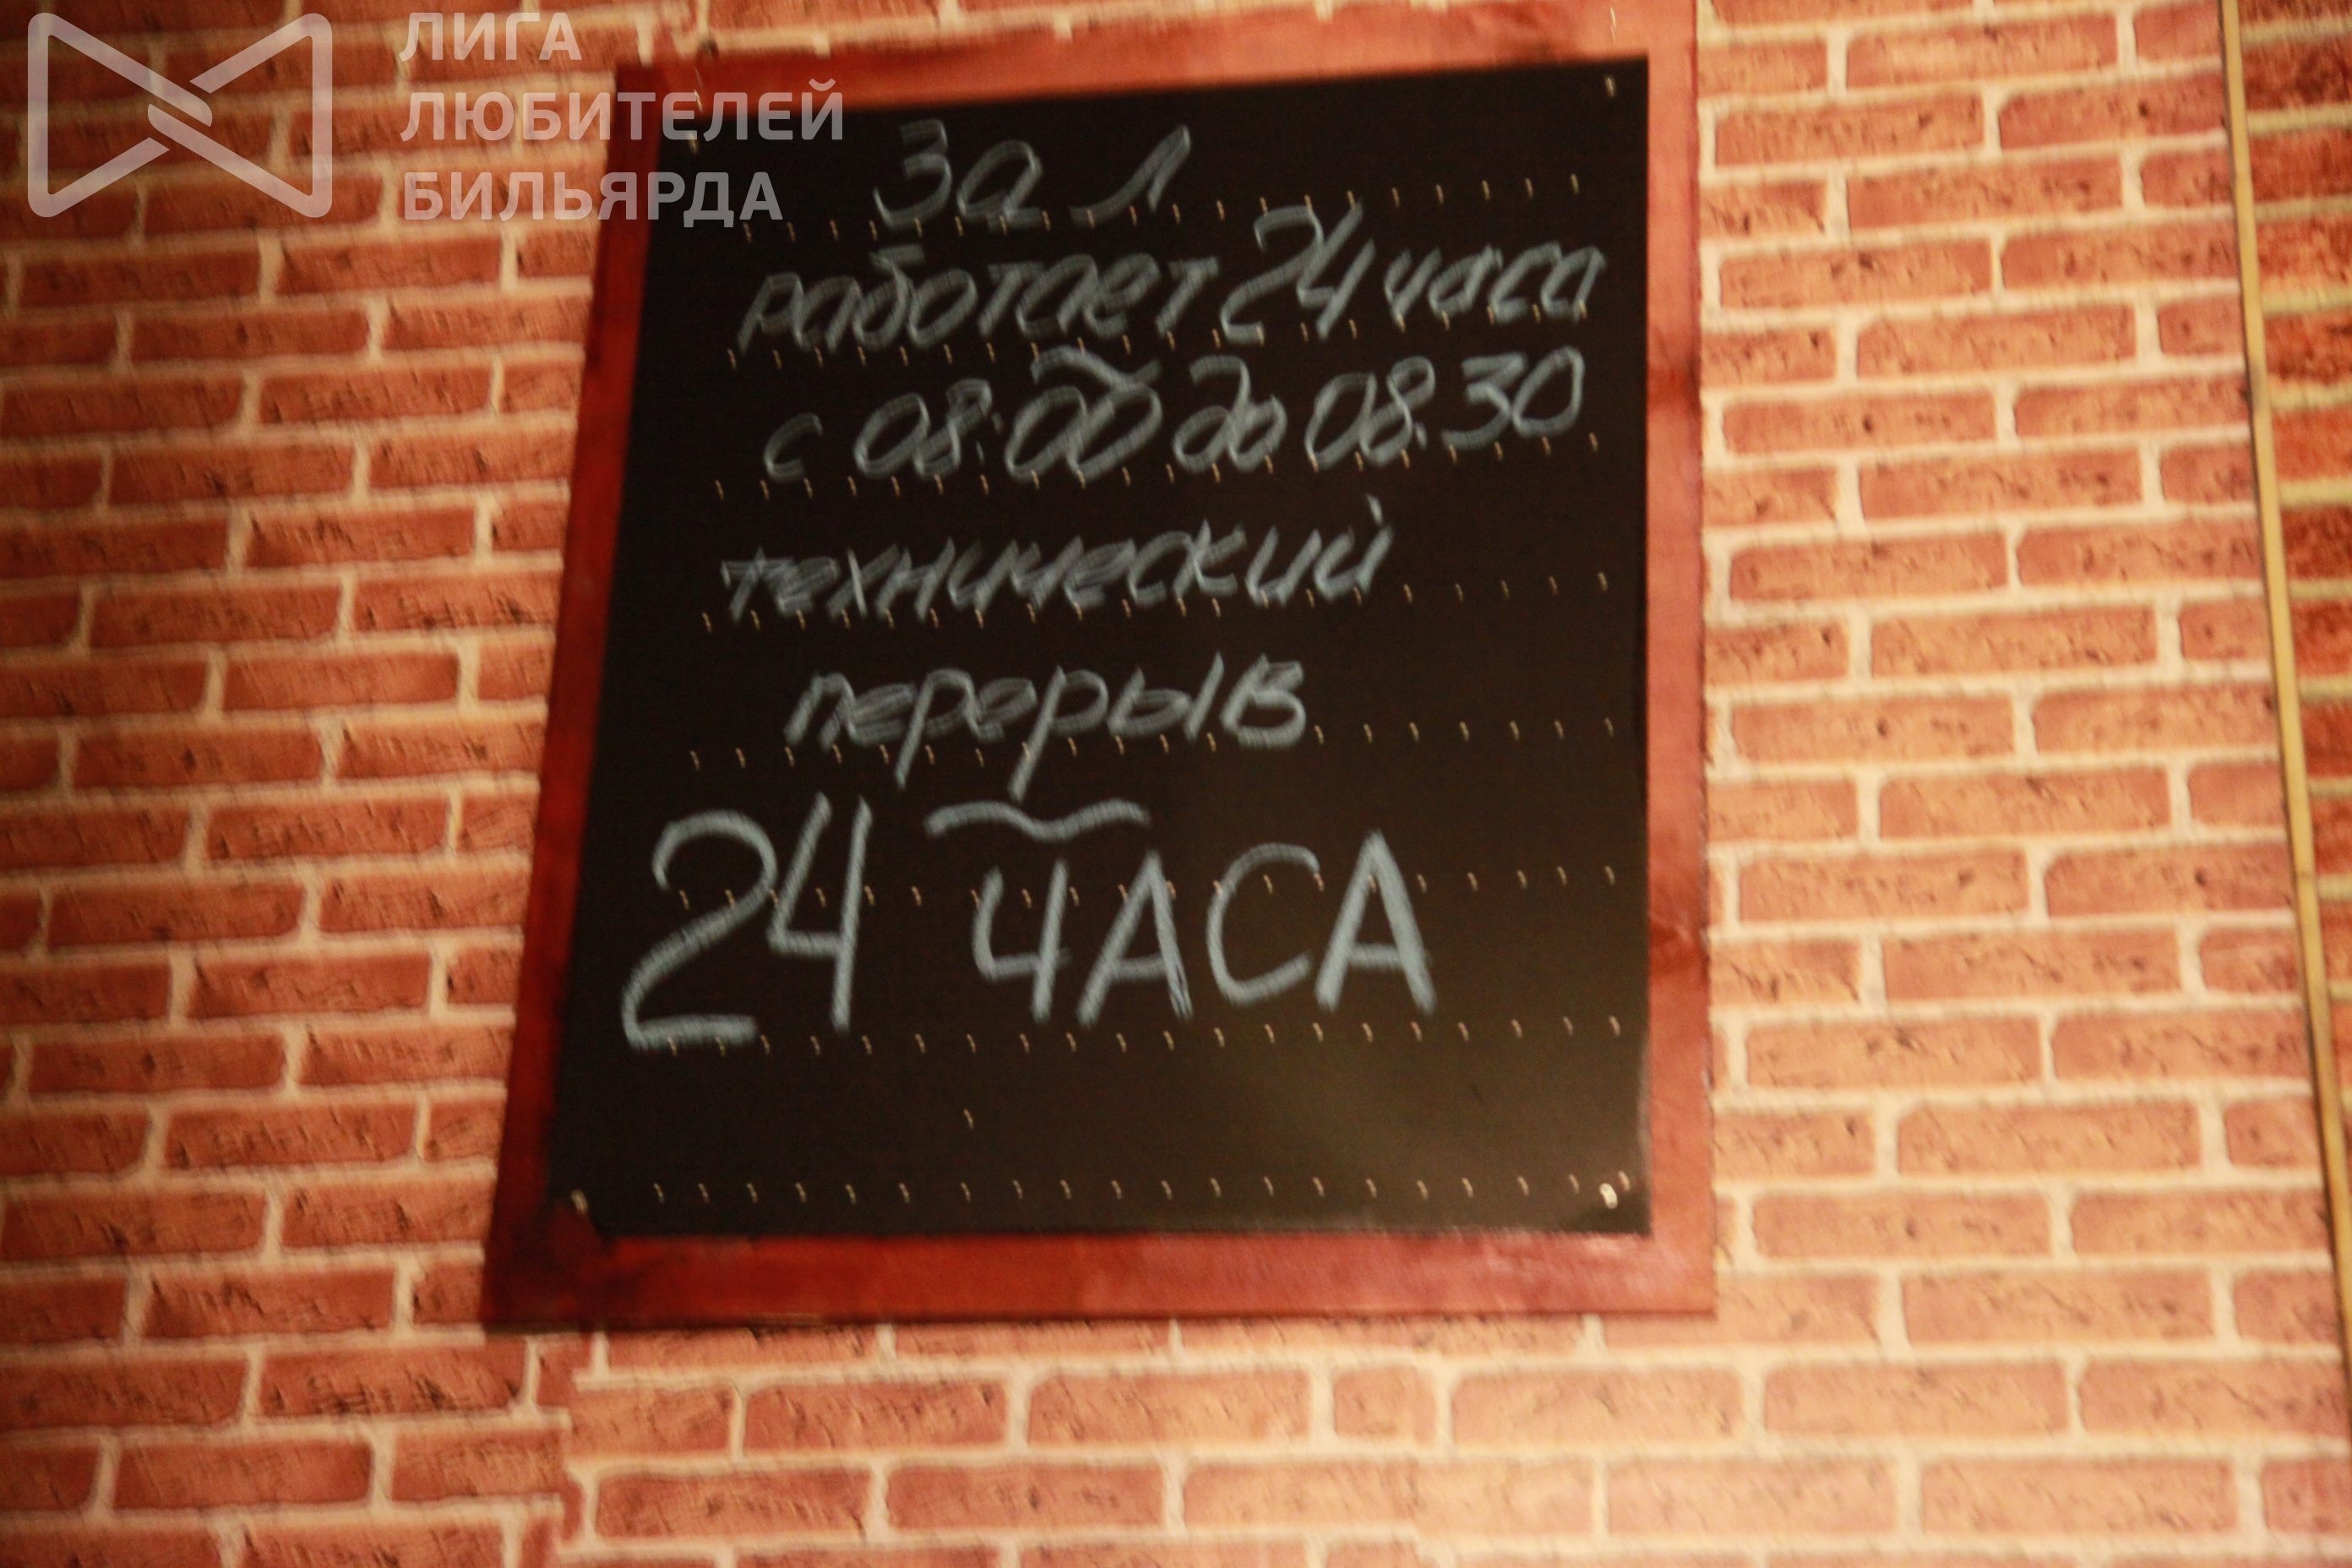 ЛИГА
ЛЮБИТЕЛЕЙ
БИЛЬЯРДА
Зал
работает 24 часа
с 08:00 до 08.30
технический
перерыв
24 ЧАСА